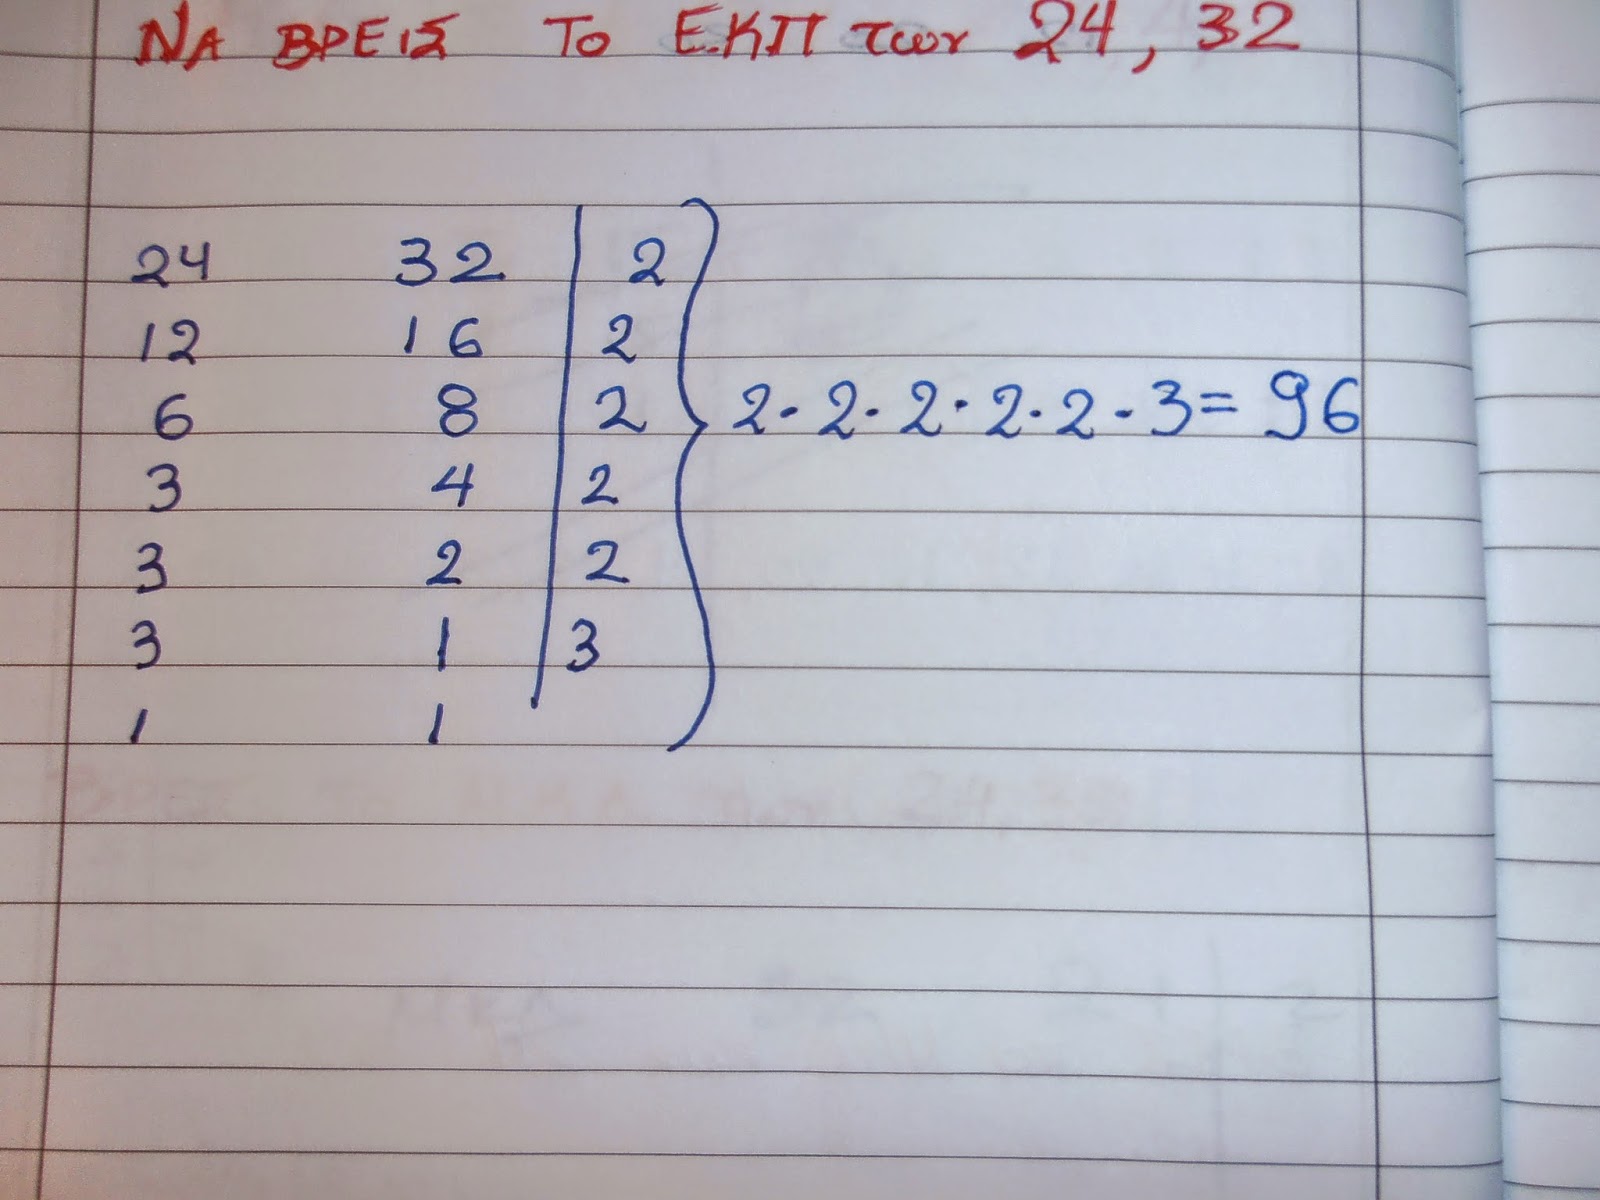 ΝΑ ΒΡΕΙΣ ΤΟ Ε.ΚΠ των 24, 32
24 32 2
12 16 2
6 8 2
2·2·2·2·2·3=96
3 4 2
3 2 2
3 1 3
1 1